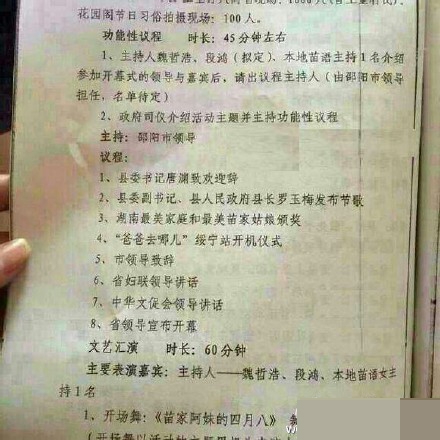 花园阁节日习俗拍摄现场：100人。
功能性议程 时长：45分钟左右
1、主持人魏哲浩、段鸿（拟定）、本地苗语主持1名介绍
参加开幕式的领导与嘉宾后，请出议程主持人（由邵阳市领导
担任，名单待定）
2、政府司仪介绍活动主题并主持功能性议程
主持：邵阳市领导
议程：
1、县委书记唐渊致欢迎辞
2、县委副书记、县人民政府县长罗玉梅发布节歌
3、湖南最美家庭和最美苗家姑娘颁奖
4、“爸爸去哪儿”绥宁站开机仪式
5、市领导致辞
6、省妇联领导讲话
7、中华文促会领导讲话
8、省领导宣布开幕
文艺汇演 时长：60分钟
主要表演嘉宾：主持人——魏哲浩、段鸿、本地苗语女主
持1名
1、开场舞：《苗家阿妹的四月八》